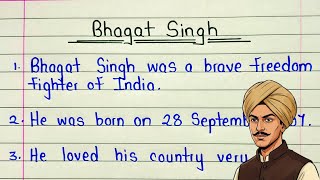 Bhagat Singh
1. Bhagat Singh was a brave freedom
fighter of India.
2. He was born on 28 September
3. He loved his country very